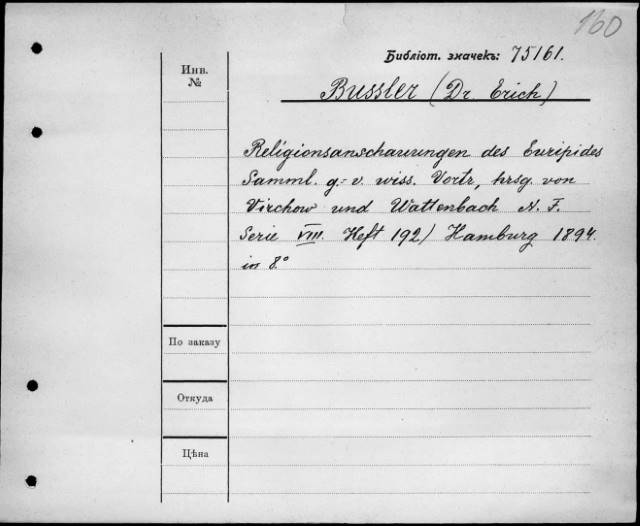 160
Библіот. значекъ: 75161.
Инв.
№
Bussler (Dr Erich)
Religionsanschauungen des Euripides
Samml. g.-v. wiss. Vortr., hrsg. von
Virchow und Wattenbach N. F.
Serie VIII. Heft 192/ Hamburg 1894.
in 8°
По заказу
Откуда
Цѣна